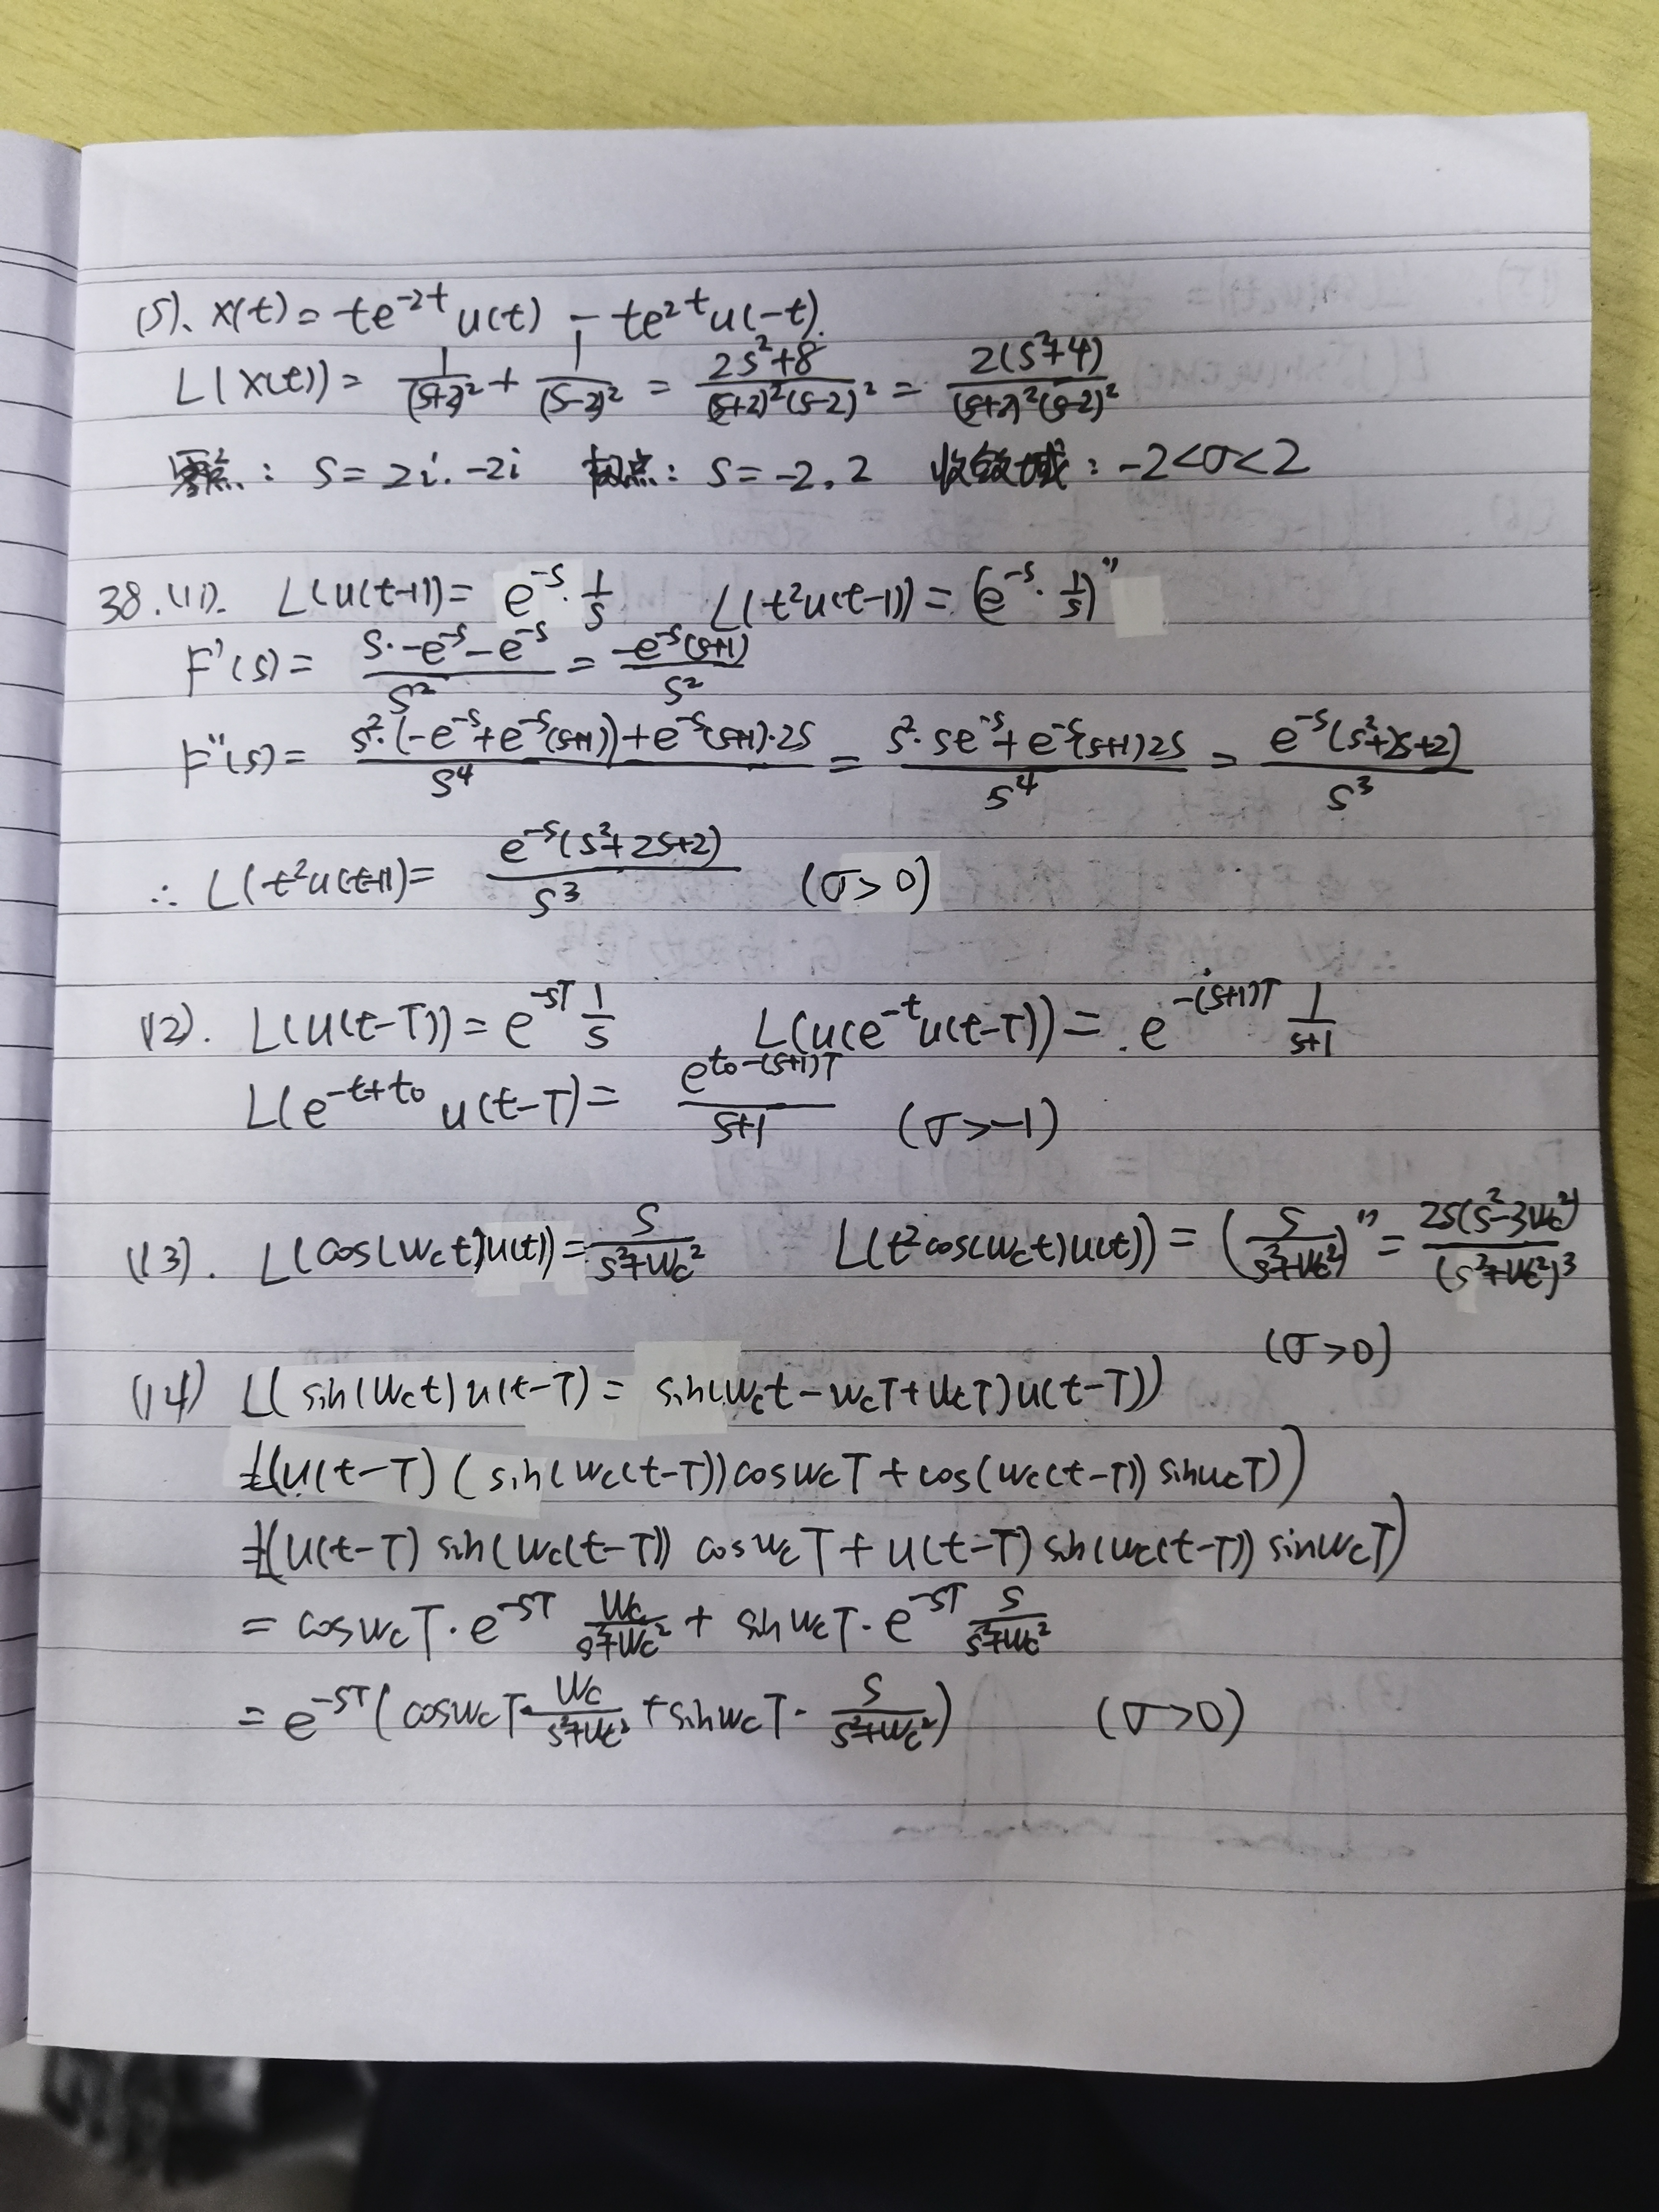 (5). x(t) = te^{-2t} u(t) - te^{2t} u(-t).
L(x(t)) = \frac{1}{(s+2)^2} + \frac{1}{(s-2)^2} = \frac{2s^2+8}{(s+2)^2(s-2)^2} = \frac{2(s^2+4)}{(s+2)^2(s-2)^2}
零点: s = 2i. -2i 极点: s = -2, 2 收敛域: -2<σ<2
38. (1). L(u(t-1)) = e^{-s} · \frac{1}{s} L(t^2u(t-1)) = (e^{-s} · \frac{1}{s})''
F'(s) = \frac{s·-e^{-s} - e^{-s}}{s^2} = \frac{-e^{-s}(s+1)}{s^2}
F''(s) = \frac{s^2·(-e^{-s}+e^{-s}(s+1))+e^{-s}(s+1)·2s}{s^4} = \frac{s^2·se^{-s}+e^{-s}(s+1)2s}{s^4} = \frac{e^{-s}(s^2+2s+2)}{s^3}
∴ L(t^2u(t-1) = \frac{e^{-s}(s^2+2s+2)}{s^3} (σ>0)
(2). L(u(t-T)) = e^{-sT} \frac{1}{s} L(u(e^{-t}u(t-T)) = . e^{-(s+1)T} \frac{1}{s+1}
L(e^{-t+t_0} u(t-T) = \frac{e^{t_0-(s+1)T}}{s+1} (σ>-1)
(3). L(cos(w_ct)u(t)) = \frac{s}{s^2+w_c^2} L(t^2cos(w_ct)u(t)) = (\frac{s}{s^2+w_c^2})'' = \frac{2s(s^2-3w_c^2)}{(s^2+w_c^2)^3}
(σ>0)
(4) L(sin(w_ct)u(t-T) = sin(w_ct-w_cT+w_cT)u(t-T))
=L(u(t-T)(sin(w_c(t-T))cosw_cT+cos(w_c(t-T))sinw_cT))
=L(u(t-T) sin(w_c(t-T)) cosw_cT+u(t-T) sin(w_c(t-T)) sinw_cT)
= cosw_cT·e^{-sT} \frac{w_c}{s^2+w_c^2} + sinw_cT·e^{-sT} \frac{s}{s^2+w_c^2}
= e^{-sT}(cosw_cT·\frac{w_c}{s^2+w_c^2}+sinw_cT·\frac{s}{s^2+w_c^2}) (σ>0)